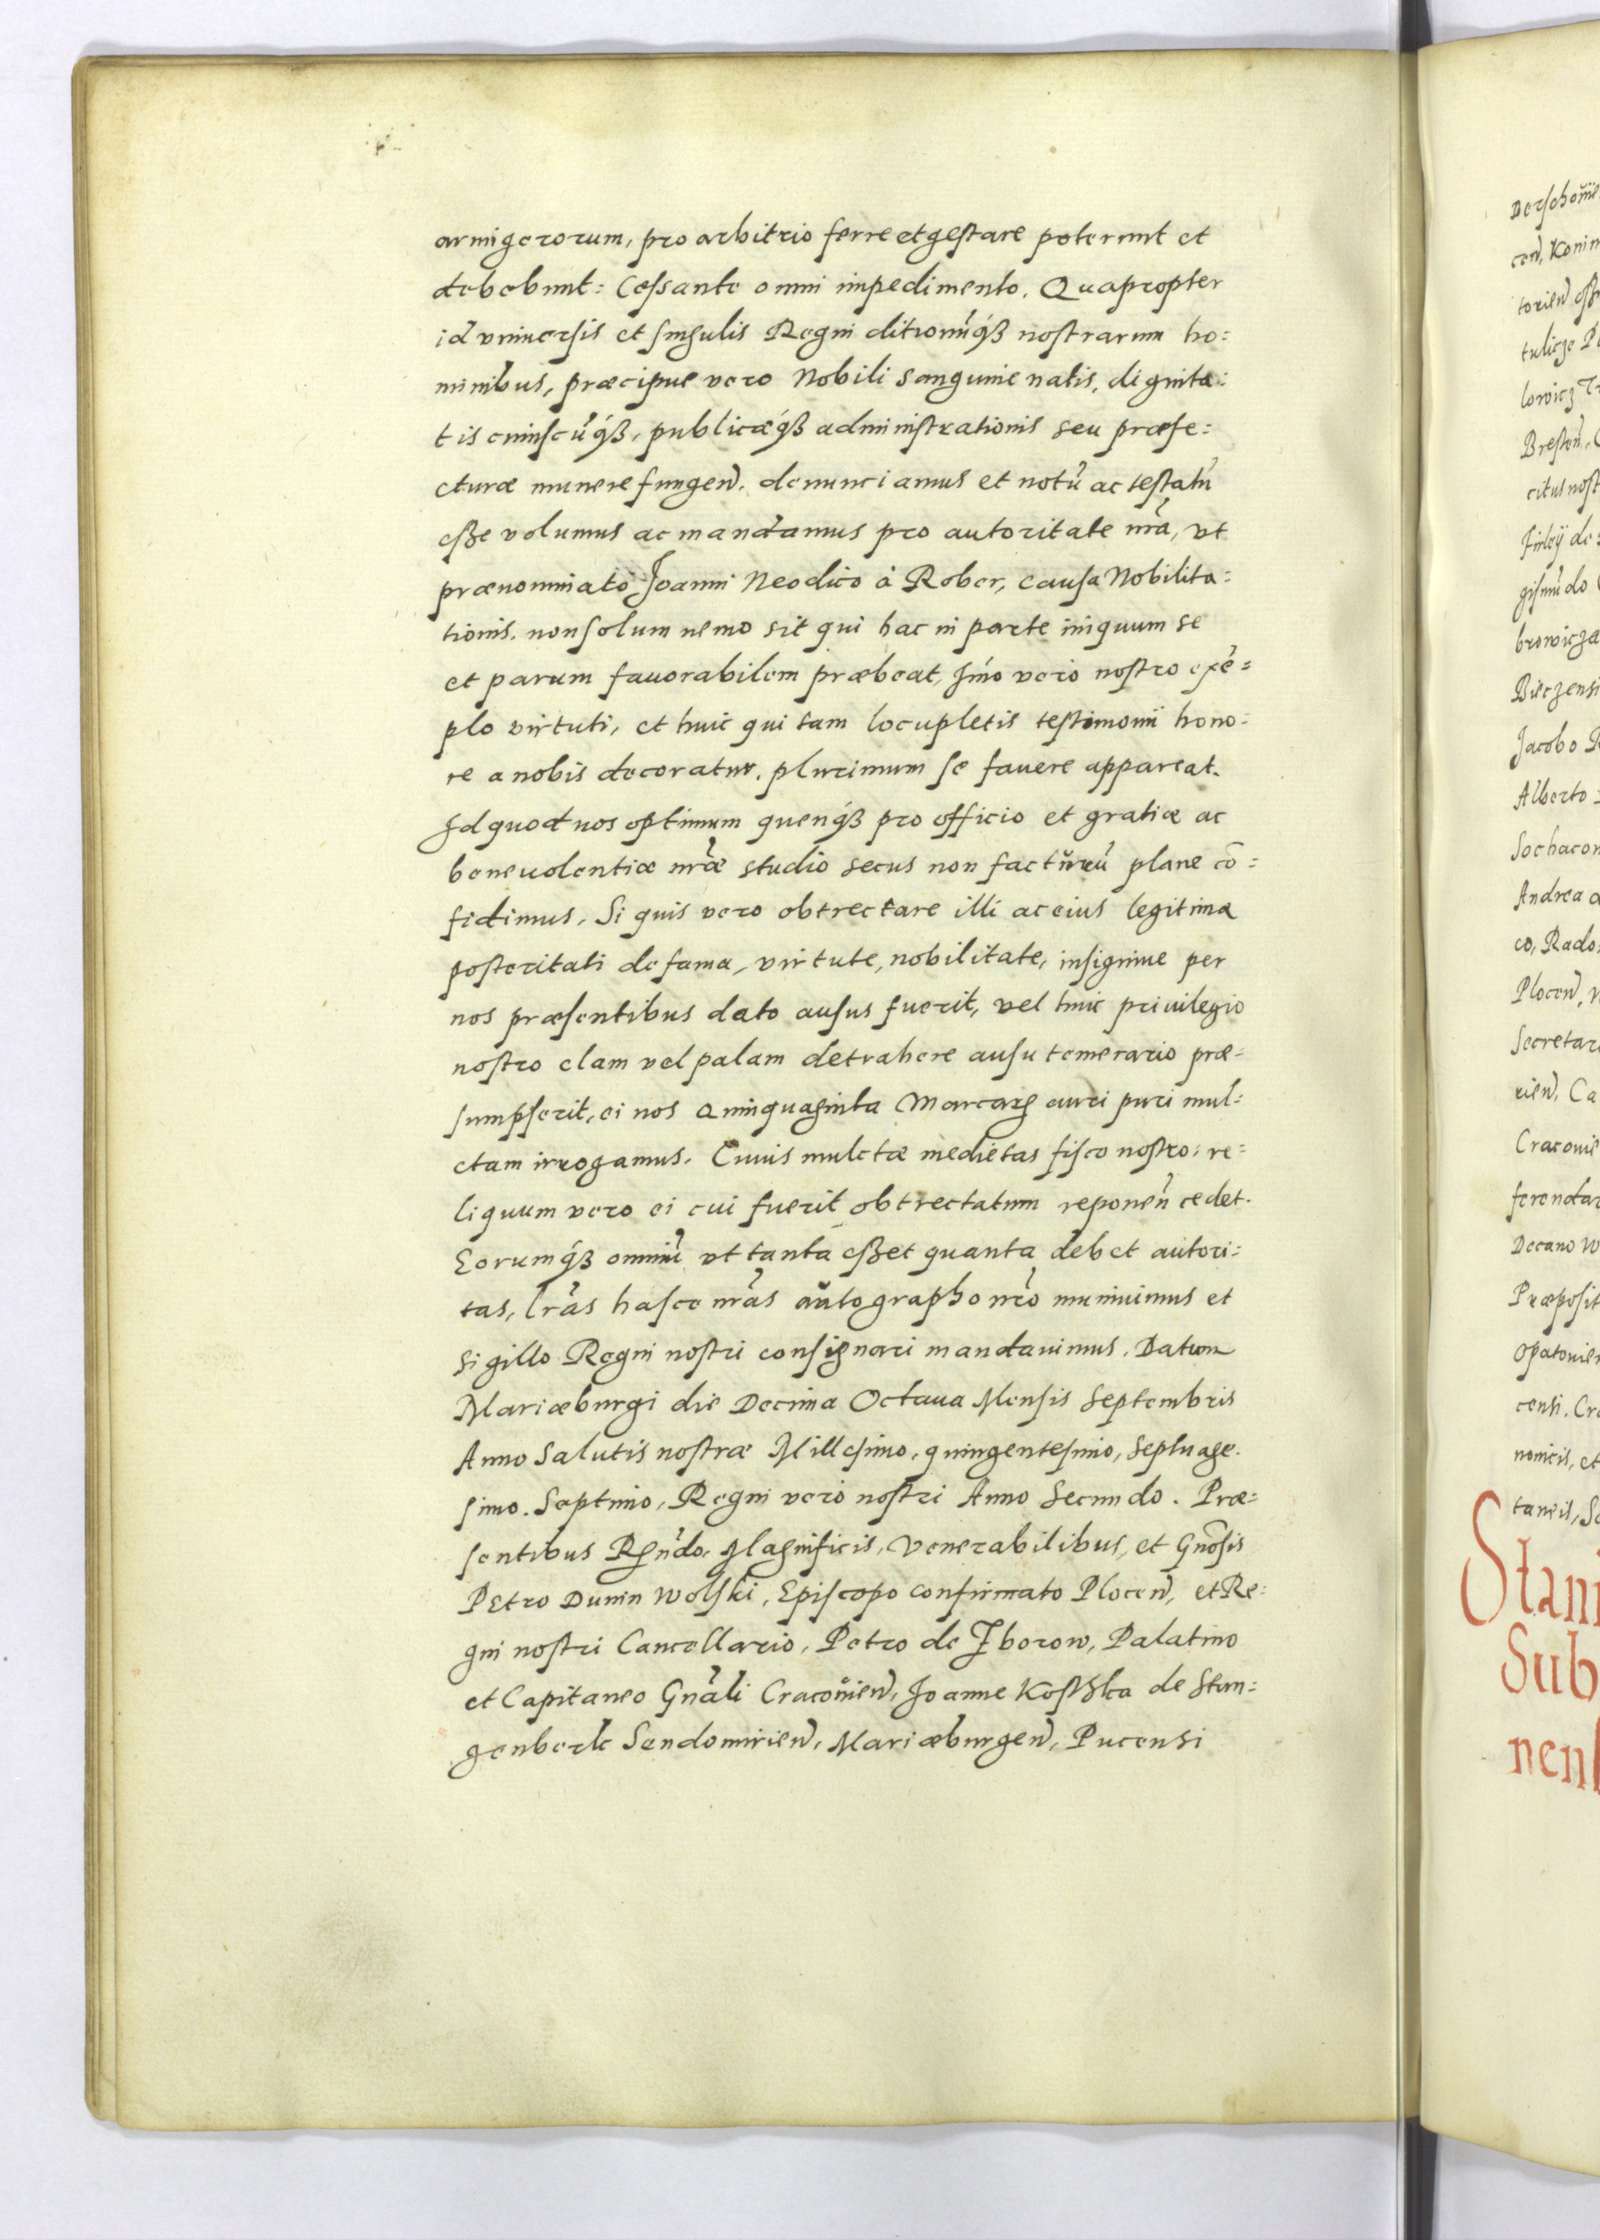 armigerorum, pro arbitrio ferre et gestare poterunt et
debebunt: Cessante omni impedimento. Quapropter
id vniuersis et singulis Regni ditionũq́ꝫ nostrarum ho:
minibus, præcipue vero Nobili sanguine natis, dignita:
tis cuiuscũq́ꝫ, publicæq́ꝫ administrationis seu præfe:
cturæ munere fungeñ. denunciamus et notũ ac testatũ
esse volumus ac mandamus pro autoritate nr̃a, vt
prænominato Joanni Neodico à Rober, causa Nobilita:
tionis. non solum nemo sit qui hac in parte iniquum se
et parum fauorabilem præbeat, Jmo vero nostro exẽ=
plo virtuti, et huic qui tam locupletis testimonij hono:
re a nobis decoratur. plurimum se fauere appareat.
Jd quod nos optimum quenq́ꝫ pro officio et gratiæ ac
beneuolentiæ nr̃æ studio secus non facturũ plane cõ:
fidimus. Si quis vero obtrectare illi ac eius legitima
posteritati de fama, virtute, nobilitate, insigniue per
nos præsentibus dato ausus fuerit, vel huic priuilegio
nostro clam vel palam detrahere ausu temerario præ=
sumpserit, ei nos Quinquaginta Marcarꝝ auri puri mul:
ctam irrogamus. Cuius mulctæ medietas fisco nostro: re:
liquum vero ei cui fuerit obtrectatum reponeñ cedet.
Eorumq́ꝫ omniũ vt tanta esset quanta debet autori:
tas, lr̃as hasce nr̃as autographo nr̃o muniuimus et
sigillo Regni nostri consignari mandauimus. Datum
Mariæburgi die Decima Octaua Mensis Septembris
Anno Salutis nostræ Millesimo, quingentesimo, Septuage.
simo. Septimo, Regni vero nostri Anno Secundo. Præ:
sentibus Rẽndo, Magnificis, Venerabilibus, et Gnõsis
Petro Dunin Wolski, Episcopo confirmato Ploceñ, et Re:
gni nostri Cancellario, Petro de Zborow, Palatino
et Capitaneo Gnãli Cracouieñ, Joanne Kostka de Stan:
genberk Sendomirieñ, Mariæburgeñ, Pucensi
tulicze
Bresteñ,
citus nost
Jacobo
Alberto
Andrea
co, Rado
Ploceñ,
Secretar
rieñ, Ca
Cracouie
ferendar
Decano
Præposit
Opatouie
censi, Cr
nonicis, et
taneis, S
Stani
Sub
nens